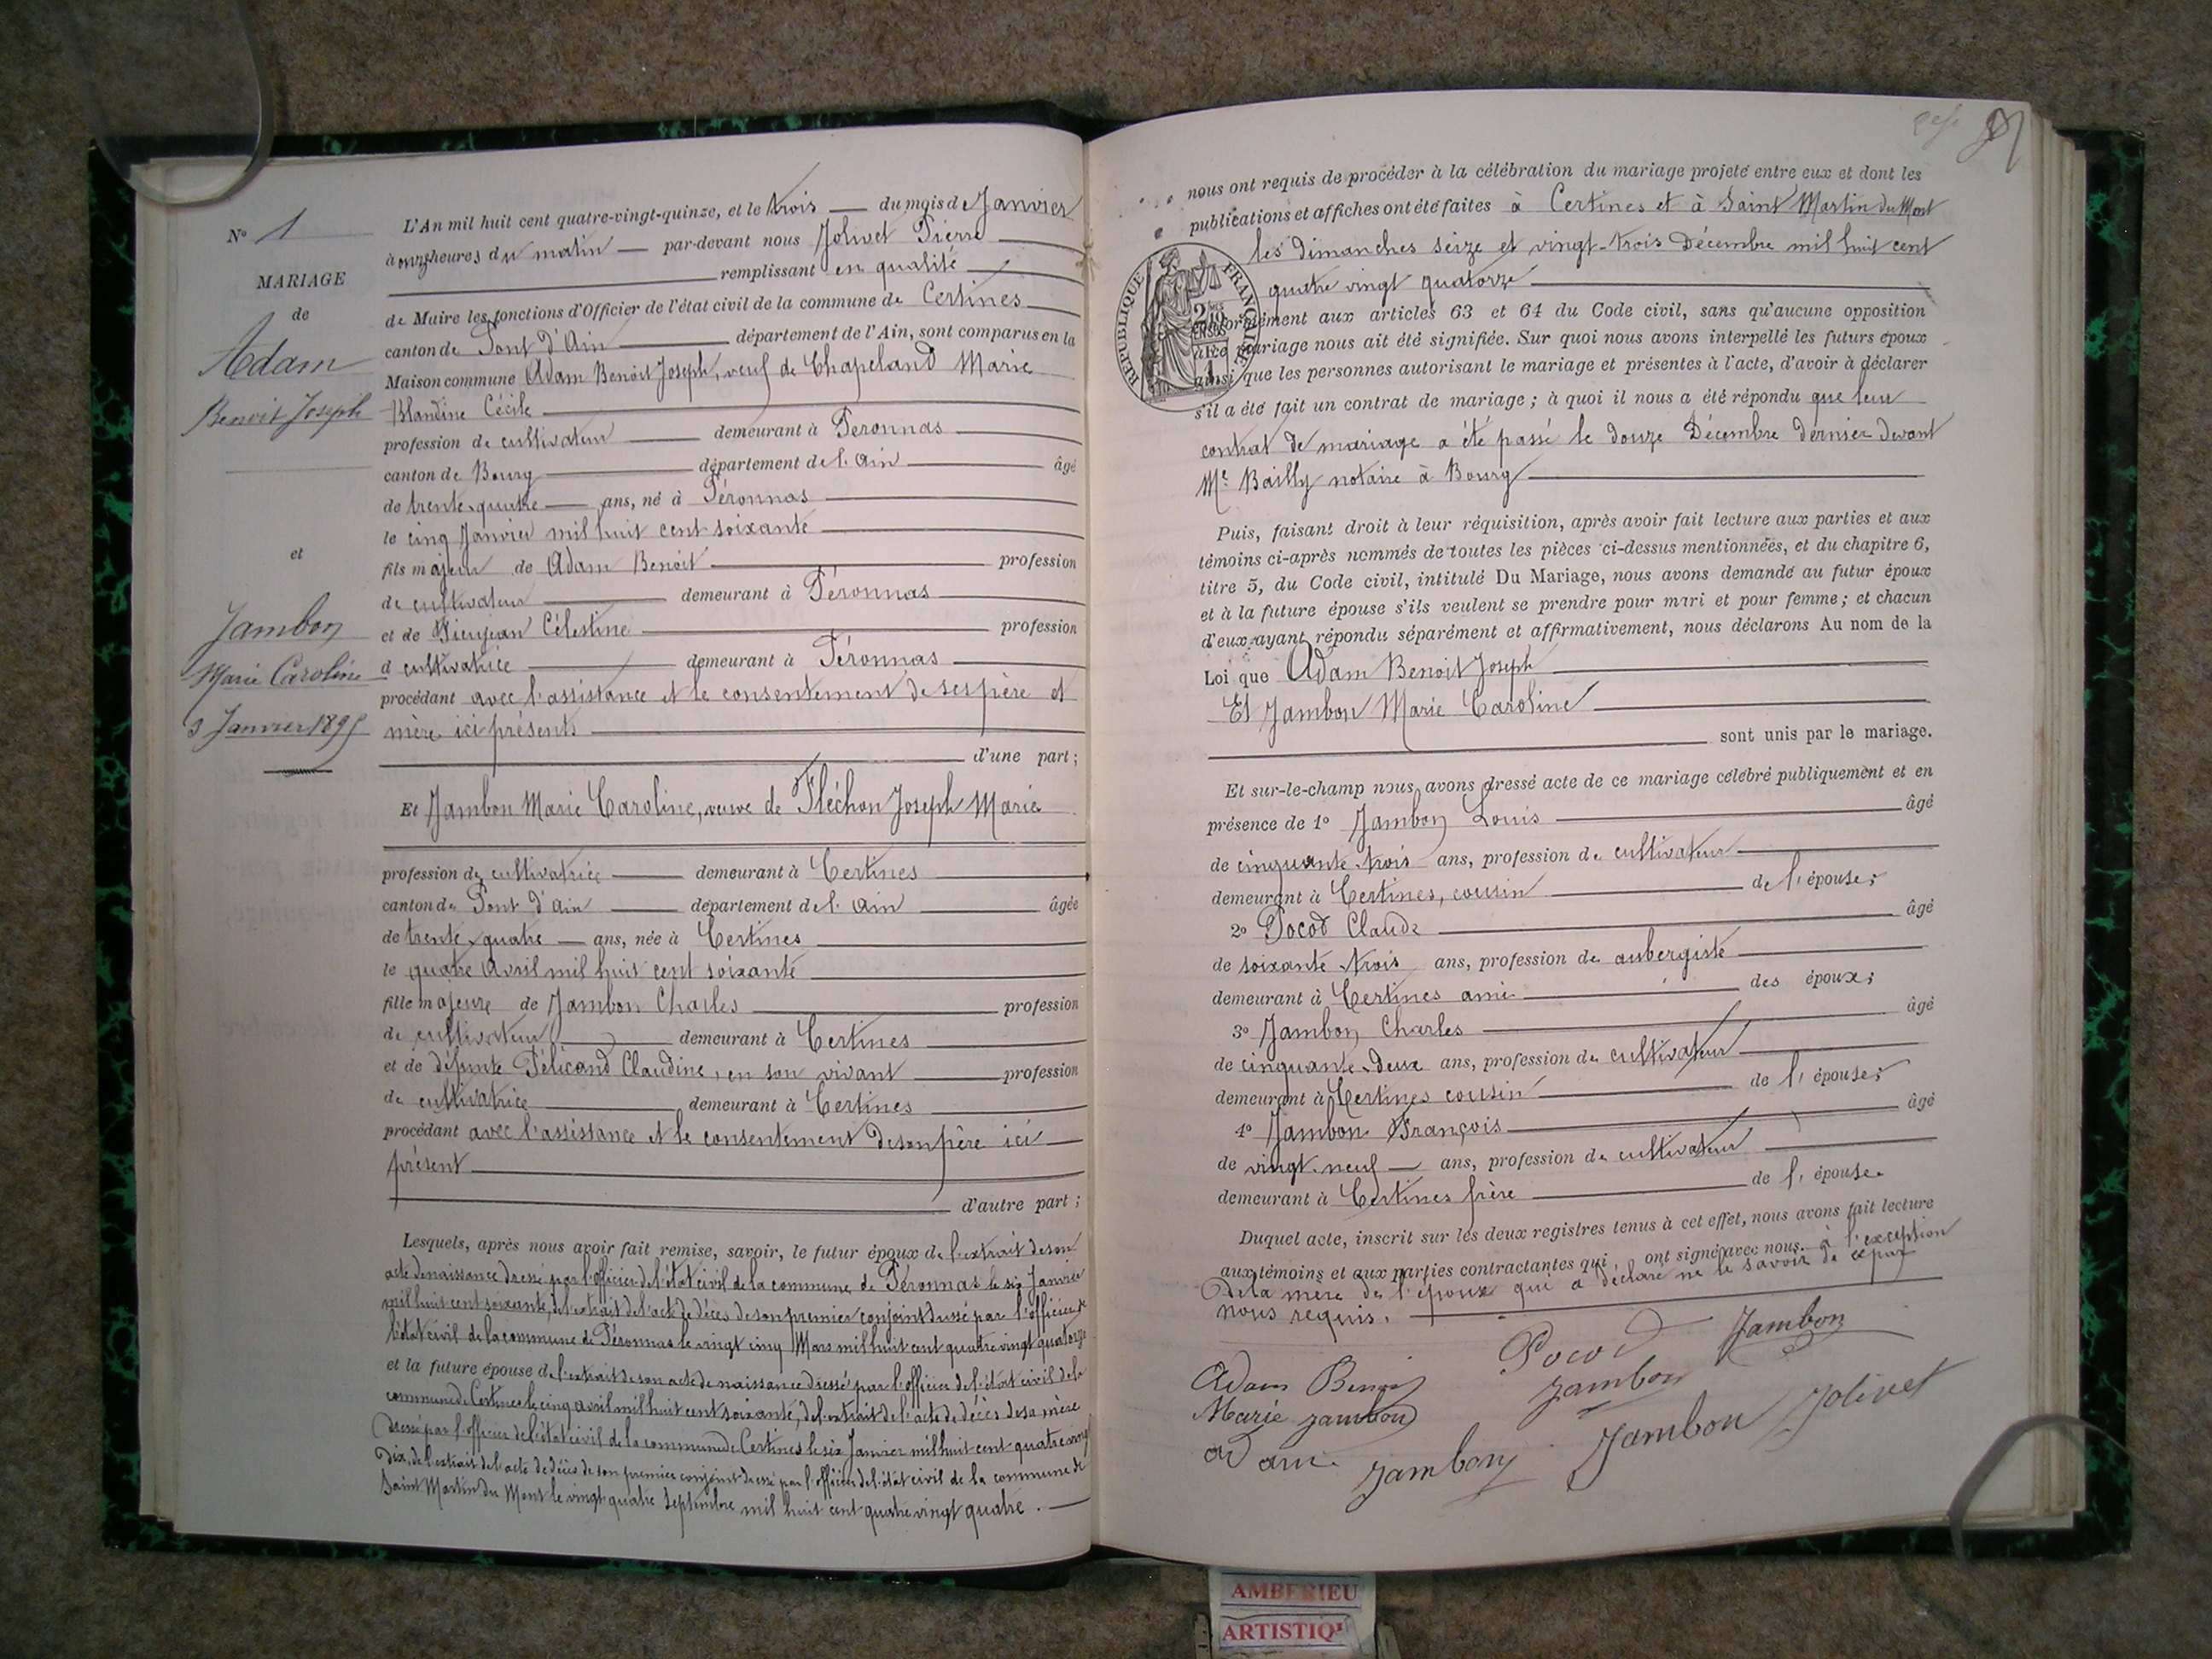 N° 1
MARIAGE
de
Adam
Benoit Joseph
et
Jambon
Marie Caroline
3 Janvier 1895
L'An mil huit cent quatre-vingt-quinze, et le trois du mois de Janvier
à onze heures du matin par-devant nous Jolivet Pierre
remplissant en qualité
de Maire les fonctions d'Officier de l'état civil de la commune de Certines
canton de Pont d'Ain département de l'Ain, sont comparus en la
Maison commune Adam Benoit Joseph, veuf de Chapeland Marie
Blandine Cécile
profession de cultivateur demeurant à Péronnas
canton de Bourg département de l'Ain âgé
de trente-quatre ans, né à Péronnas
le cinq Janvier mil huit cent soixante
fils majeur de Adam Benoit profession
de cultivateur demeurant à Péronnas
et de Vieujean Célestine profession
d cultivatrice demeurant à Péronnas
procédant avec l'assistance et le consentement de ses père et
mère ici présents
d'une part ;
Et Jambon Marie Caroline, veuve de Fléchon Joseph Marie
profession de cultivatrice demeurant à Certines
canton de Pont d'Ain département de l'Ain âgée
de trente-quatre ans, née à Certines
le quatre Avril mil huit cent soixante
fille majeure de Jambon Charles profession
de cultivateur demeurant à Certines
et de défunte Félicand Claudine, en son vivant profession
de cultivatrice demeurant à Certines
procédant avec l'assistance et le consentement de son père ici
présent
d'autre part ;
Lesquels, après nous avoir fait remise, savoir, le futur époux de l'extrait de son
acte de naissance dressé par l'officier de l'état civil de la commune de Péronnas le six Janvier
mil huit cent soixante, de l'extrait de l'acte de décès de son premier conjoint dressé par l'officier de
l'état civil de la commune de Péronnas le vingt cinq Mars mil huit cent quatre vingt quatorze
et la future épouse de l'extrait de son acte de naissance dressé par l'officier de l'état civil de la
commune de Certines le cinq avril mil huit cent soixante, de l'extrait de l'acte de décès de sa mère
dressé par l'officier de l'état civil de la commune de Certines le six Janvier mil huit cent quatre vingt
dix, de l'extrait de l'acte de décès de son premier conjoint dressé par l'officier de l'état civil de la commune de
Saint Martin du Mont le vingt quatre Septembre mil huit cent quatre vingt quatre.
nous ont requis de procéder à la célébration du mariage projeté entre eux et dont les
publications et affiches ont été faites à Certines et à Saint Martin du Mont
les dimanches seize et vingt-trois Décembre mil huit cent
quatre vingt quatorze
RÉPUBLIQUE FRANÇAISE
conformément aux articles 63 et 64 du Code civil, sans qu'aucune opposition
audit mariage nous ait été signifiée. Sur quoi nous avons interpellé les futurs époux
ainsi que les personnes autorisant le mariage et présentes à l'acte, d'avoir à déclarer
s'il a été fait un contrat de mariage ; à quoi il nous a été répondu que leur
contrat de mariage a été passé le douze Décembre dernier devant
Me Bailly notaire à Bourg
Puis, faisant droit à leur réquisition, après avoir fait lecture aux parties et aux
témoins ci-après nommés de toutes les pièces ci-dessus mentionnées, et du chapitre 6,
titre 5, du Code civil, intitulé Du Mariage, nous avons demandé au futur époux
et à la future épouse s'ils veulent se prendre pour mari et pour femme ; et chacun
d'eux ayant répondu séparément et affirmativement, nous déclarons Au nom de la
Loi que Adam Benoit Joseph
Et Jambon Marie Caroline
sont unis par le mariage.
Et sur-le-champ nous avons dressé acte de ce mariage célébré publiquement et en
présence de 1° Jambon Louis âgé
de cinquante-trois ans, profession de cultivateur
demeurant à Certines, cousin de l'épouse ;
2° Pocod Claude âgé
de soixante-trois ans, profession de aubergiste
demeurant à Certines ami des époux ;
3° Jambon Charles âgé
de cinquante-deux ans, profession de cultivateur
demeurant à Certines cousin de l'épouse ;
4° Jambon François âgé
de vingt-neuf ans, profession de cultivateur
demeurant à Certines frère de l'épouse.
Duquel acte, inscrit sur les deux registres tenus à cet effet, nous avons fait lecture
aux témoins et aux parties contractantes qui ont signé avec nous. à l'exception
de la mère de l'époux qui a déclaré ne le savoir de ce par
nous requis.
Pocod Jambon
Adam Benoit Jambon
Marie Jambon Jambon Jolivet
adam Jambon
AMBERIEU
ARTISTIQ